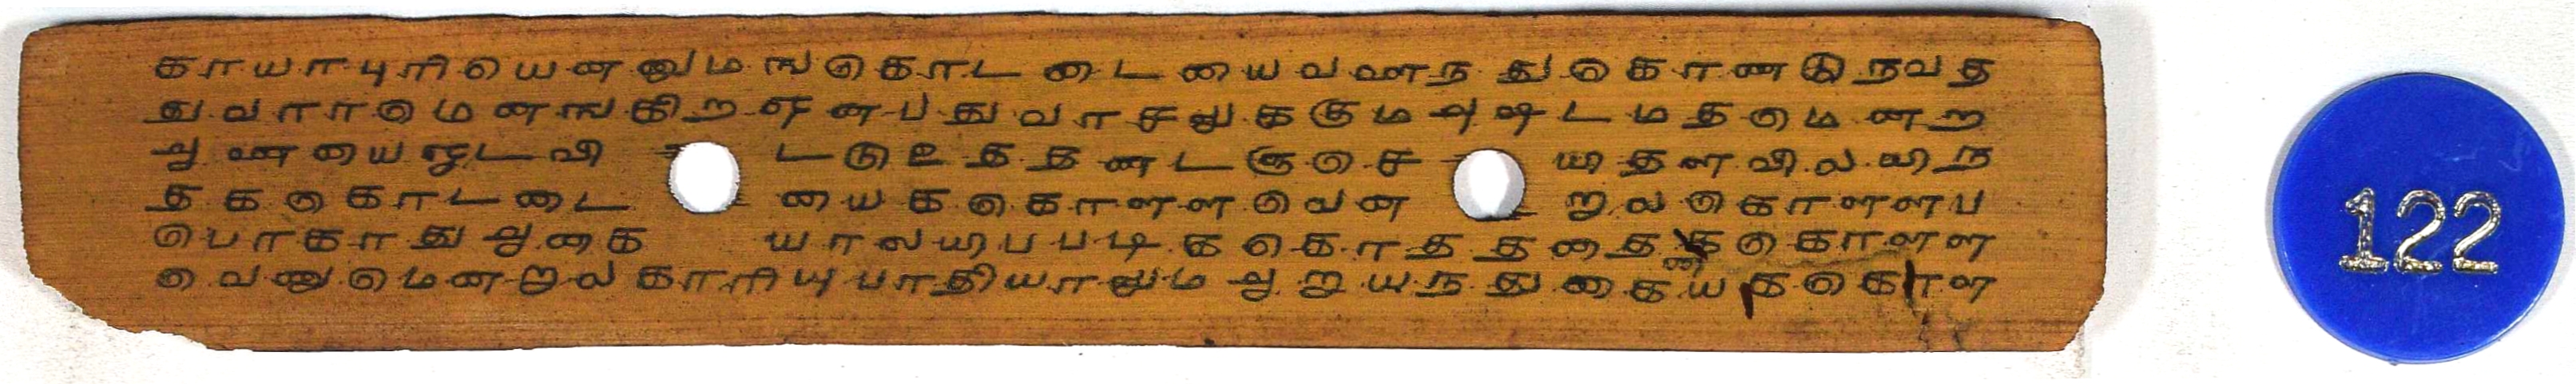 காயாபுரியெனனுமஙகொடடையைவளைநதுகொணடுநவத
துவாரமெனஙகிறஒனபதுவாசலுககுமஅஷடமதமெனற
ஆனையைஓடவிடடுஉததணடஞசெயிதளவிலயிந
தககொடடையைககொளளவெனறலகொளளப
பொகாதுஆகையாலயிபபடிககொததததைககொளள
வெணுமெனறலகாரியுபாதியாலுமஆறுயநதுகையககொள
122